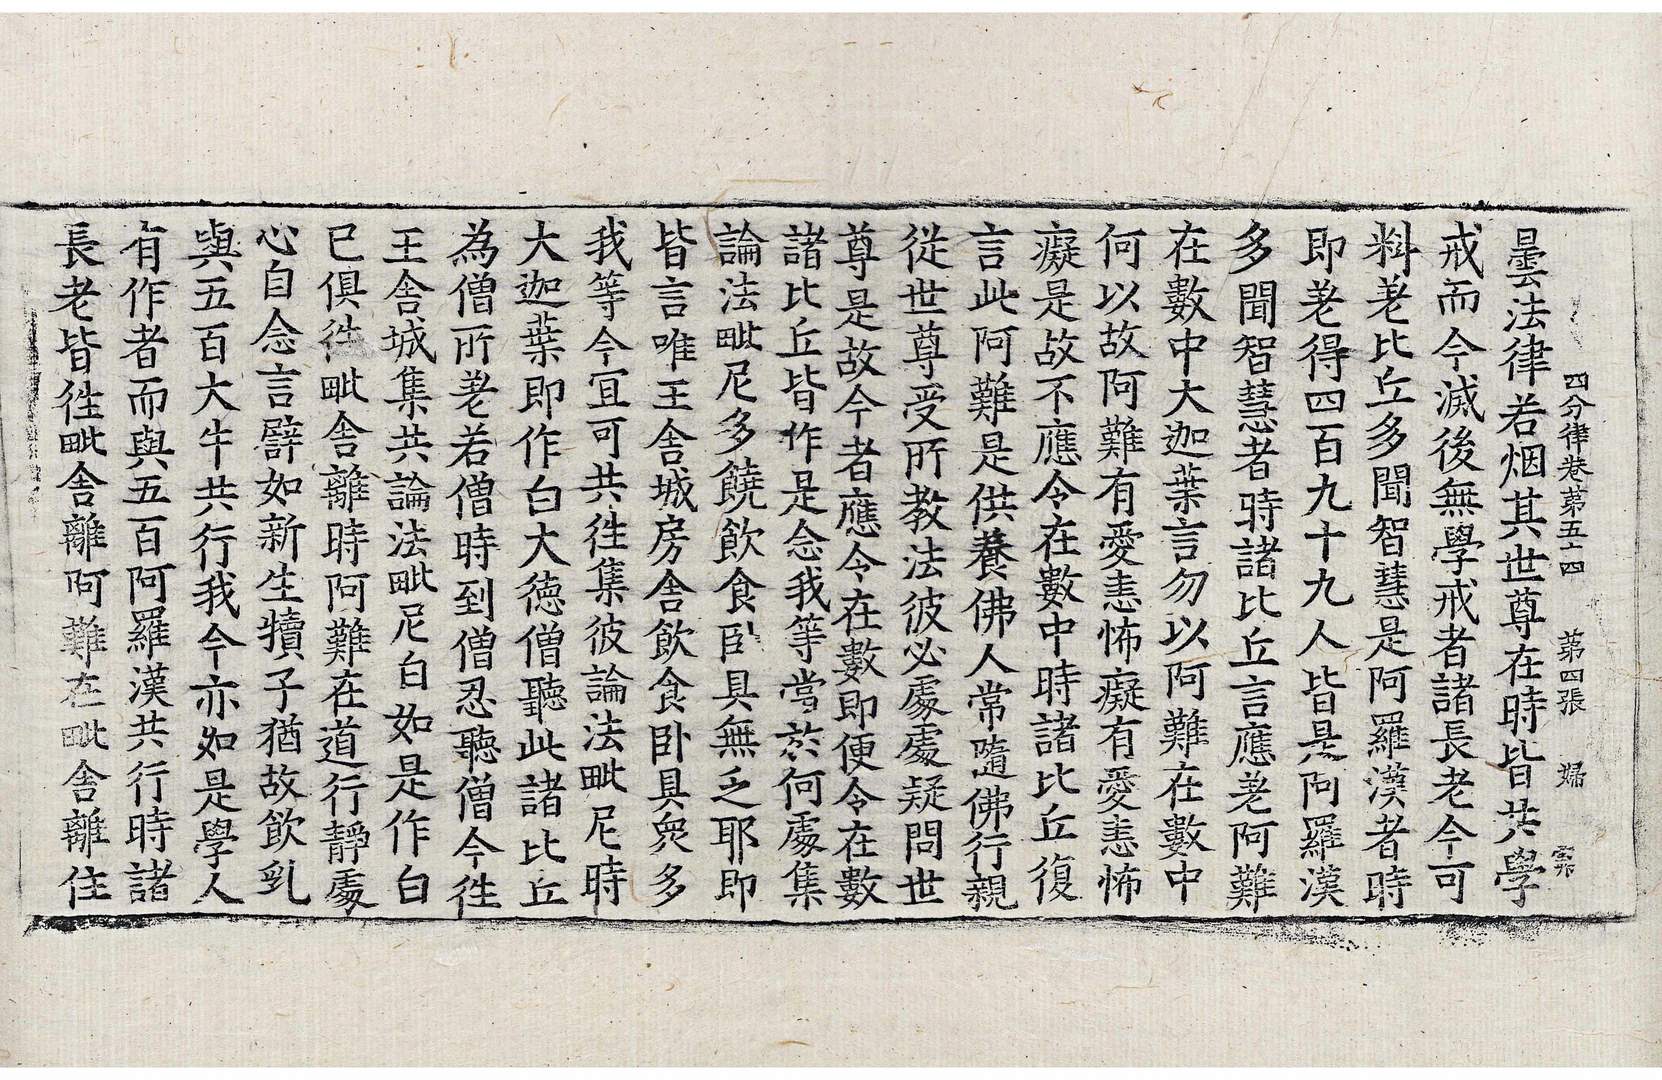 四分律卷第五十四 第四張 婦
曇法律若烟其世尊在時皆共學
戒而今滅後無學戒者諸長老今可
料差比丘多聞智慧是阿羅漢者時
即差得四百九十九人皆是阿羅漢
多聞智慧者時諸比丘言應差阿難
在數中大迦葉言勿以阿難在數中
何以故阿難有愛恚怖癡有愛恚怖
癡是故不應令在數中時諸比丘復
言此阿難是供養佛人常隨佛行親
從世尊受所教法彼必處處疑問世
尊是故今者應令在數即便令在數
諸比丘皆作是念我等當於何處集
論法毗尼多饒飲食臥具無乏耶即
皆言唯王舍城房舍飲食臥具衆多
我等今宜可共往集彼論法毗尼時
大迦葉即作白大德僧聽此諸比丘
為僧所差若僧時到僧忍聽僧今往
王舍城集共論法毗尼白如是作白
已俱往毗舍離時阿難在道行靜處
心自念言譬如新生犢子猶故飲乳
與五百大牛共行我今亦如是學人
有作者而與五百阿羅漢共行時諸
長老皆往毗舍離阿難在毗舍離住